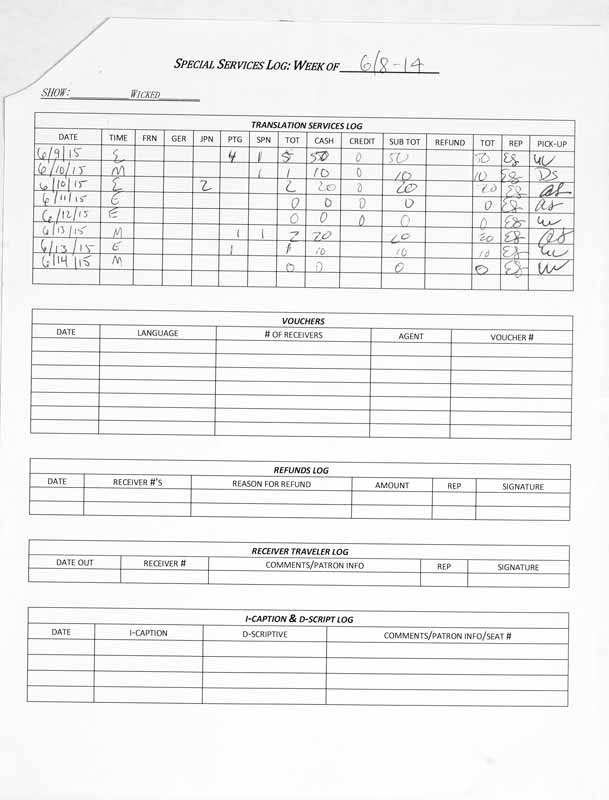 SPECIAL SERVICES LOG: WEEK OF 6/8-14
SHOW: WICKED
TRANSLATION SERVICES LOG
DATE TIME FRN GER JPN PTG SPN TOT CASH CREDIT SUB TOT REFUND TOT REP PICK-UP
6/9/15 E 4 1 5 50 0 50 50
6/10/15 M 1 1 10 0 10 10 DS
6/10/15 E 2 2 20 0 20 20
6/11/15 E 0 0 0 0 0
6/12/15 E 0 0 0 0 0
6/13/15 M 1 1 2 20 20 20
6/13/15 E 1 1 10 10 10
6/14/15 M 0 0 0 0
VOUCHERS
DATE LANGUAGE # OF RECEIVERS AGENT VOUCHER #
REFUNDS LOG
DATE RECEIVER #'S REASON FOR REFUND AMOUNT REP SIGNATURE
RECEIVER TRAVELER LOG
DATE OUT RECEIVER # COMMENTS/PATRON INFO REP SIGNATURE
I-CAPTION & D-SCRIPT LOG
DATE I-CAPTION D-SCRIPTIVE COMMENTS/PATRON INFO/SEAT #